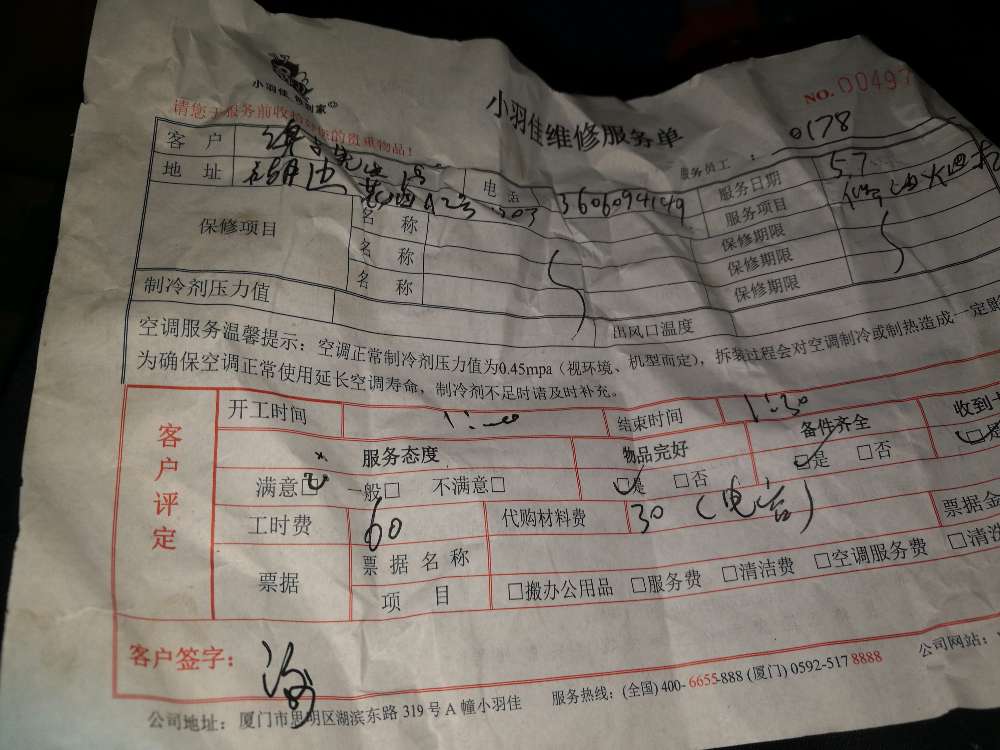 小羽佳 到家
NO. 00497
小羽佳维修服务单
请您于服务前收拾好您的贵重物品！
服务员工： 0178
客 户
服务日期 5.7
地 址 电 话 服务项目
503 3606094149
保修项目 名 称 保修期限
名 称 保修期限
名 称 保修期限
制冷剂压力值 出风口温度
空调服务温馨提示：空调正常制冷剂压力值为0.45mpa（视环境、机型而定），拆装过程会对空调制冷或制热造成一定
为确保空调正常使用延长空调寿命，制冷剂不足时请及时补充。
客户评定
开工时间 1:00 结束时间 1:30
服务态度 物品完好 备件齐全 收到
满意☑ 一般□ 不满意□ ☑是 □否 ☑是 □否 ☑是
工时费 60 代购材料费 30 票据金
票据 票 据 名 称
项 目 □搬办公用品 □服务费 □清洁费 □空调服务费 □清洗
客户签字：
公司地址：厦门市思明区湖滨东路 319 号 A 幢小羽佳 服务热线：(全国) 400-6655-888 (厦门) 0592-517 8888 公司网站：